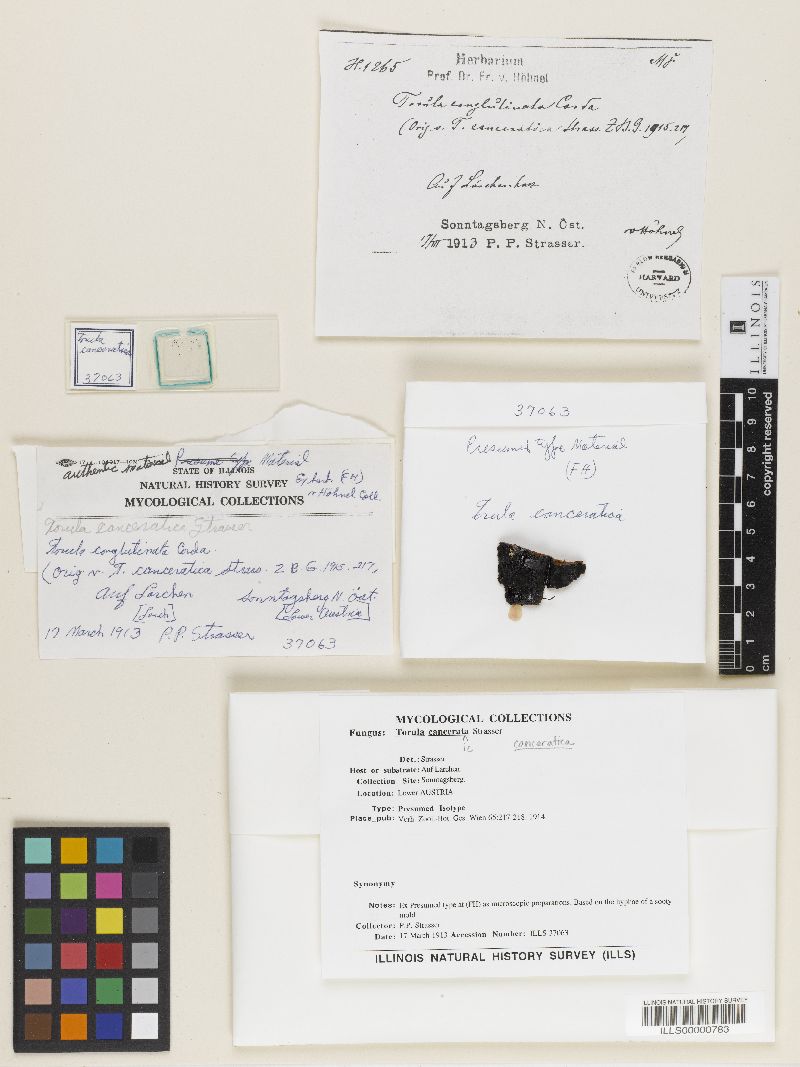 H.1265
Herbarium
Prof. Dr. Fr. v. Höhnel
Torula conglutinata Corda
(Orig. v. T. canceratica Strass. Z.B.G. 1915. 217)
Auf
Sonntagsberg N. Öst.
1913 P. P. Strasser.
v Höhnel
FARLOW HERBARIUM
HARVARD
UNIVERSITY
Torula
canceratica
37063
authentic material Presume Type Material
STATE OF ILLINOIS
NATURAL HISTORY SURVEY
Ex herb. (FH)
v Höhnel Coll.
MYCOLOGICAL COLLECTIONS
Torula canceratica Strasser
Torula conglutinata Corda
(Orig v. T. canceratica Strass. Z. B. G. 1915. 217,
Auf Larchen Sonntagsberg N. Öst.
[Larch] [Lower Austria]
17 March 1913 P.P. Strasser
37063
37063
Presumed Type Material
(FH)
Torula canceratica
ILLINOIS
0 1 2 3 4 5 6 7 8 9 10
cm
copyright reserved
MYCOLOGICAL COLLECTIONS
Fungus: Torula cancerata Strasser
ic
canceratica
Det.: Strasser
Host or substrate: Auf Larchen
Collection Site: Sonntagsberg.
Location: Lower AUSTRIA
Type: Presumed Isotype
Place_pub: Verh. Zool.-Bot. Ges. Wien 65:217-218. 1914.
Synonymy
Notes: Ex Presumed type at (FH) as microscopic preparations. Based on the hyphae of a sooty
mold
Collector: P.P. Strasser
Date: 17 March 1913 Accession Number: ILLS 37063
ILLINOIS NATURAL HISTORY SURVEY (ILLS)
ILLINOIS NATURAL HISTORY SURVEY
ILLS00000763